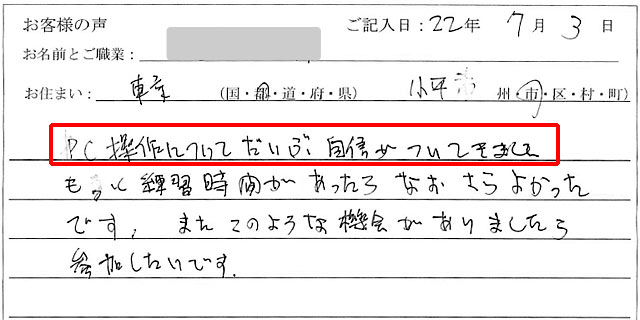 お客様の声 ご記入日：22年 7月 3日
お名前とご職業：
お住まい： 東京 (国・都・道・府・県) 小平市 州・市・区・村・町)
PC操作についてだいぶ自信がついてきました
もっと練習時間があったらなおさらよかった
です。またこのような機会がありましたら
参加したいです。